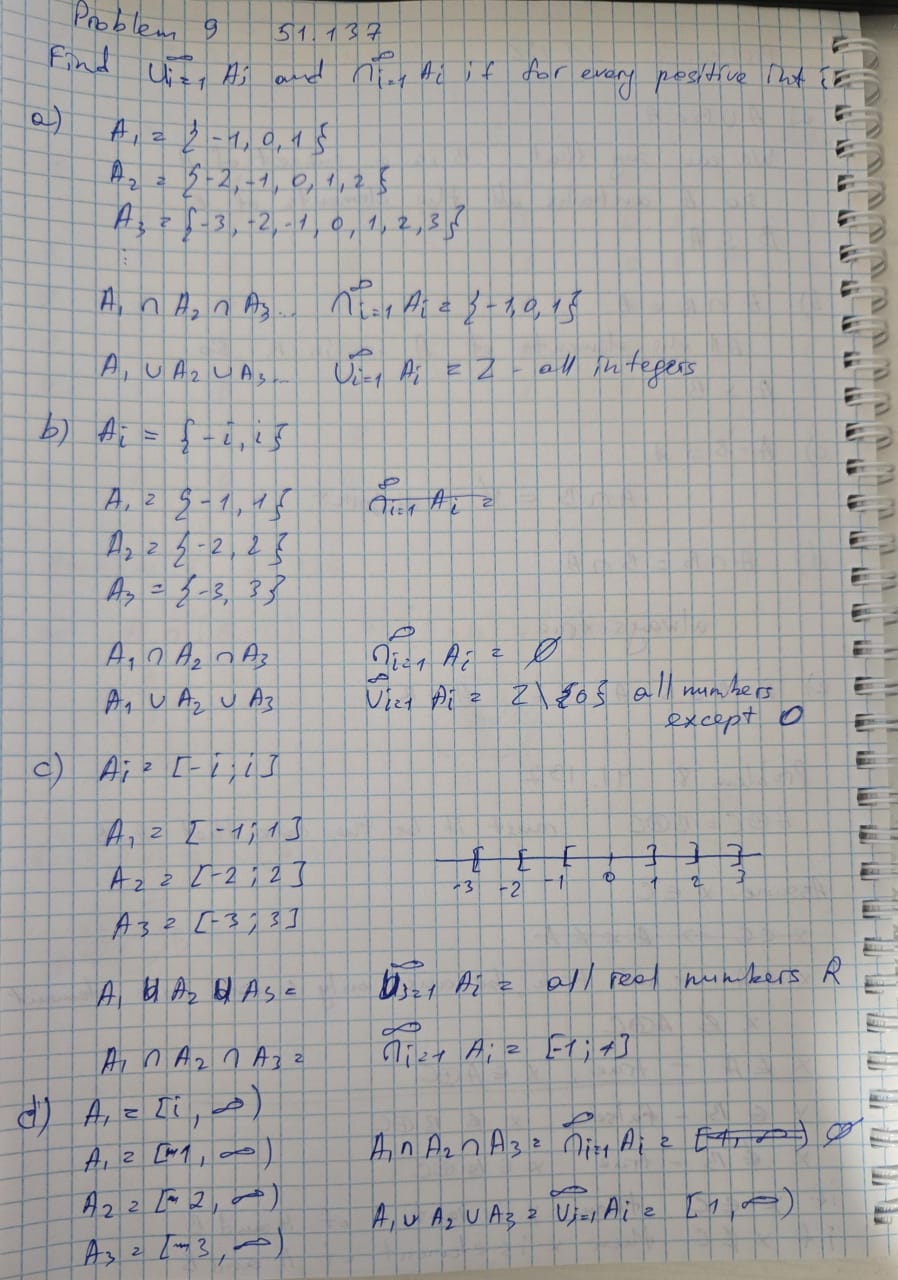 Problem 9 51.137
Find ∪∞i=1 Ai and ∩∞i=1 Ai if for every positive int i
a)
A₁ = {-1, 0, 1}
A₂ = {-2, -1, 0, 1, 2}
A₃ = {-3, -2, -1, 0, 1, 2, 3}
⋮
A₁ ∩ A₂ ∩ A₃... ∩∞i=1 Ai = {-1, 0, 1}
A₁ ∪ A₂ ∪ A₃... ∪∞i=1 Ai = Z - all integers
b) Ai = {-i, i}
A₁ = {-1, 1} ∩∞i=1 Ai =
A₂ = {-2, 2}
A₃ = {-3, 3}
A₁ ∩ A₂ ∩ A₃ ∩∞i=1 Ai = ∅
A₁ ∪ A₂ ∪ A₃ ∪∞i=1 Ai = Z \ {0} all numbers
except 0
c) Ai = [-i; i]
A₁ = [-1; 1]
A₂ = [-2; 2]
-3 -2 -1 0 1 2 3
A₃ = [-3; 3]
A₁ ∪ A₂ ∪ A₃ = ∪∞i=1 Ai = all real numbers R
A₁ ∩ A₂ ∩ A₃ = ∩∞i=1 Ai = [-1; 1]
d) A₁ = [i, ∞)
A₁ = [1, ∞) A₁ ∩ A₂ ∩ A₃ = ∩∞i=1 Ai = [1, ∞) ∅
A₂ = [2, ∞)
A₃ = [3, ∞) A₁ ∪ A₂ ∪ A₃ = ∪∞i=1 Ai = [1, ∞)